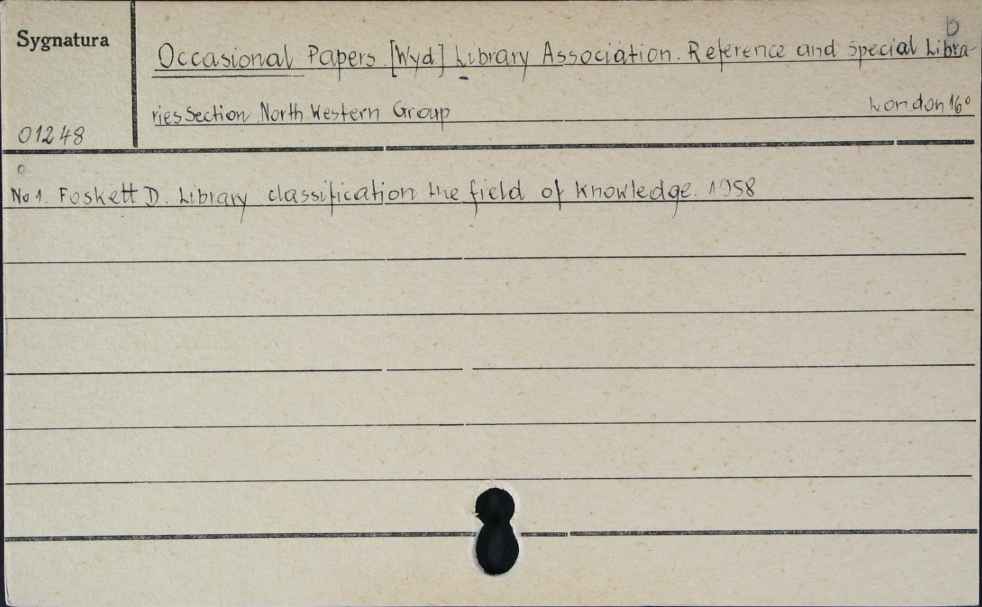 b
Sygnatura
Occasional Papers. [Wyd] Library Association. Reference and special Libra-
ries Section North Western Group
London 16°
01248
No 1. Foskett D. Library classification the field of knowledge. 1958